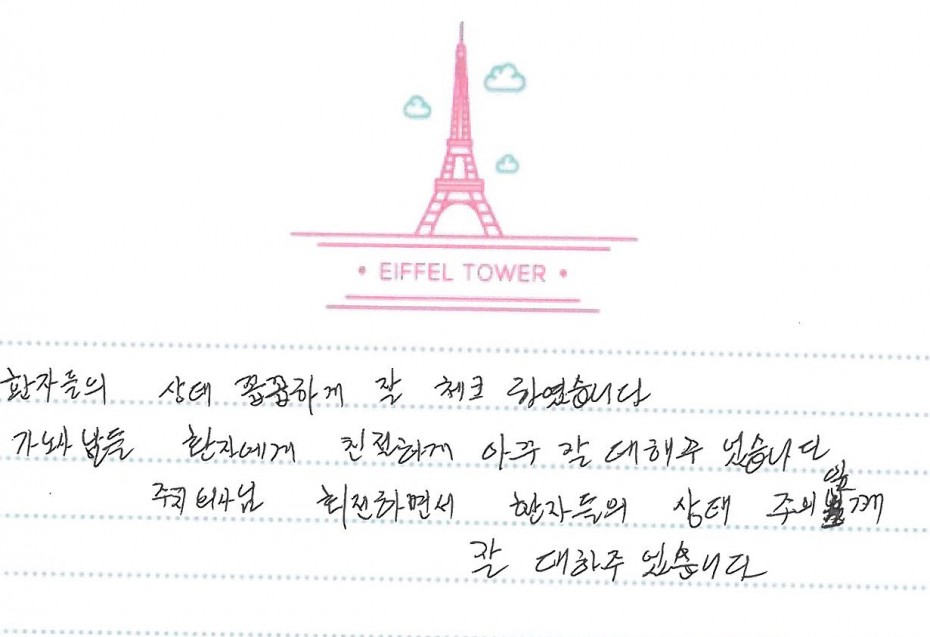 • EIFFEL TOWER •
환자들의 상태 꼼꼼하게 잘 체크 하였습니다
간호사님들 환자에게 친절하게 아주 잘 대해주 었습니다
주치의사님 회진하면서 환자들의 상태 주의깊게
잘 대하주 었습니다